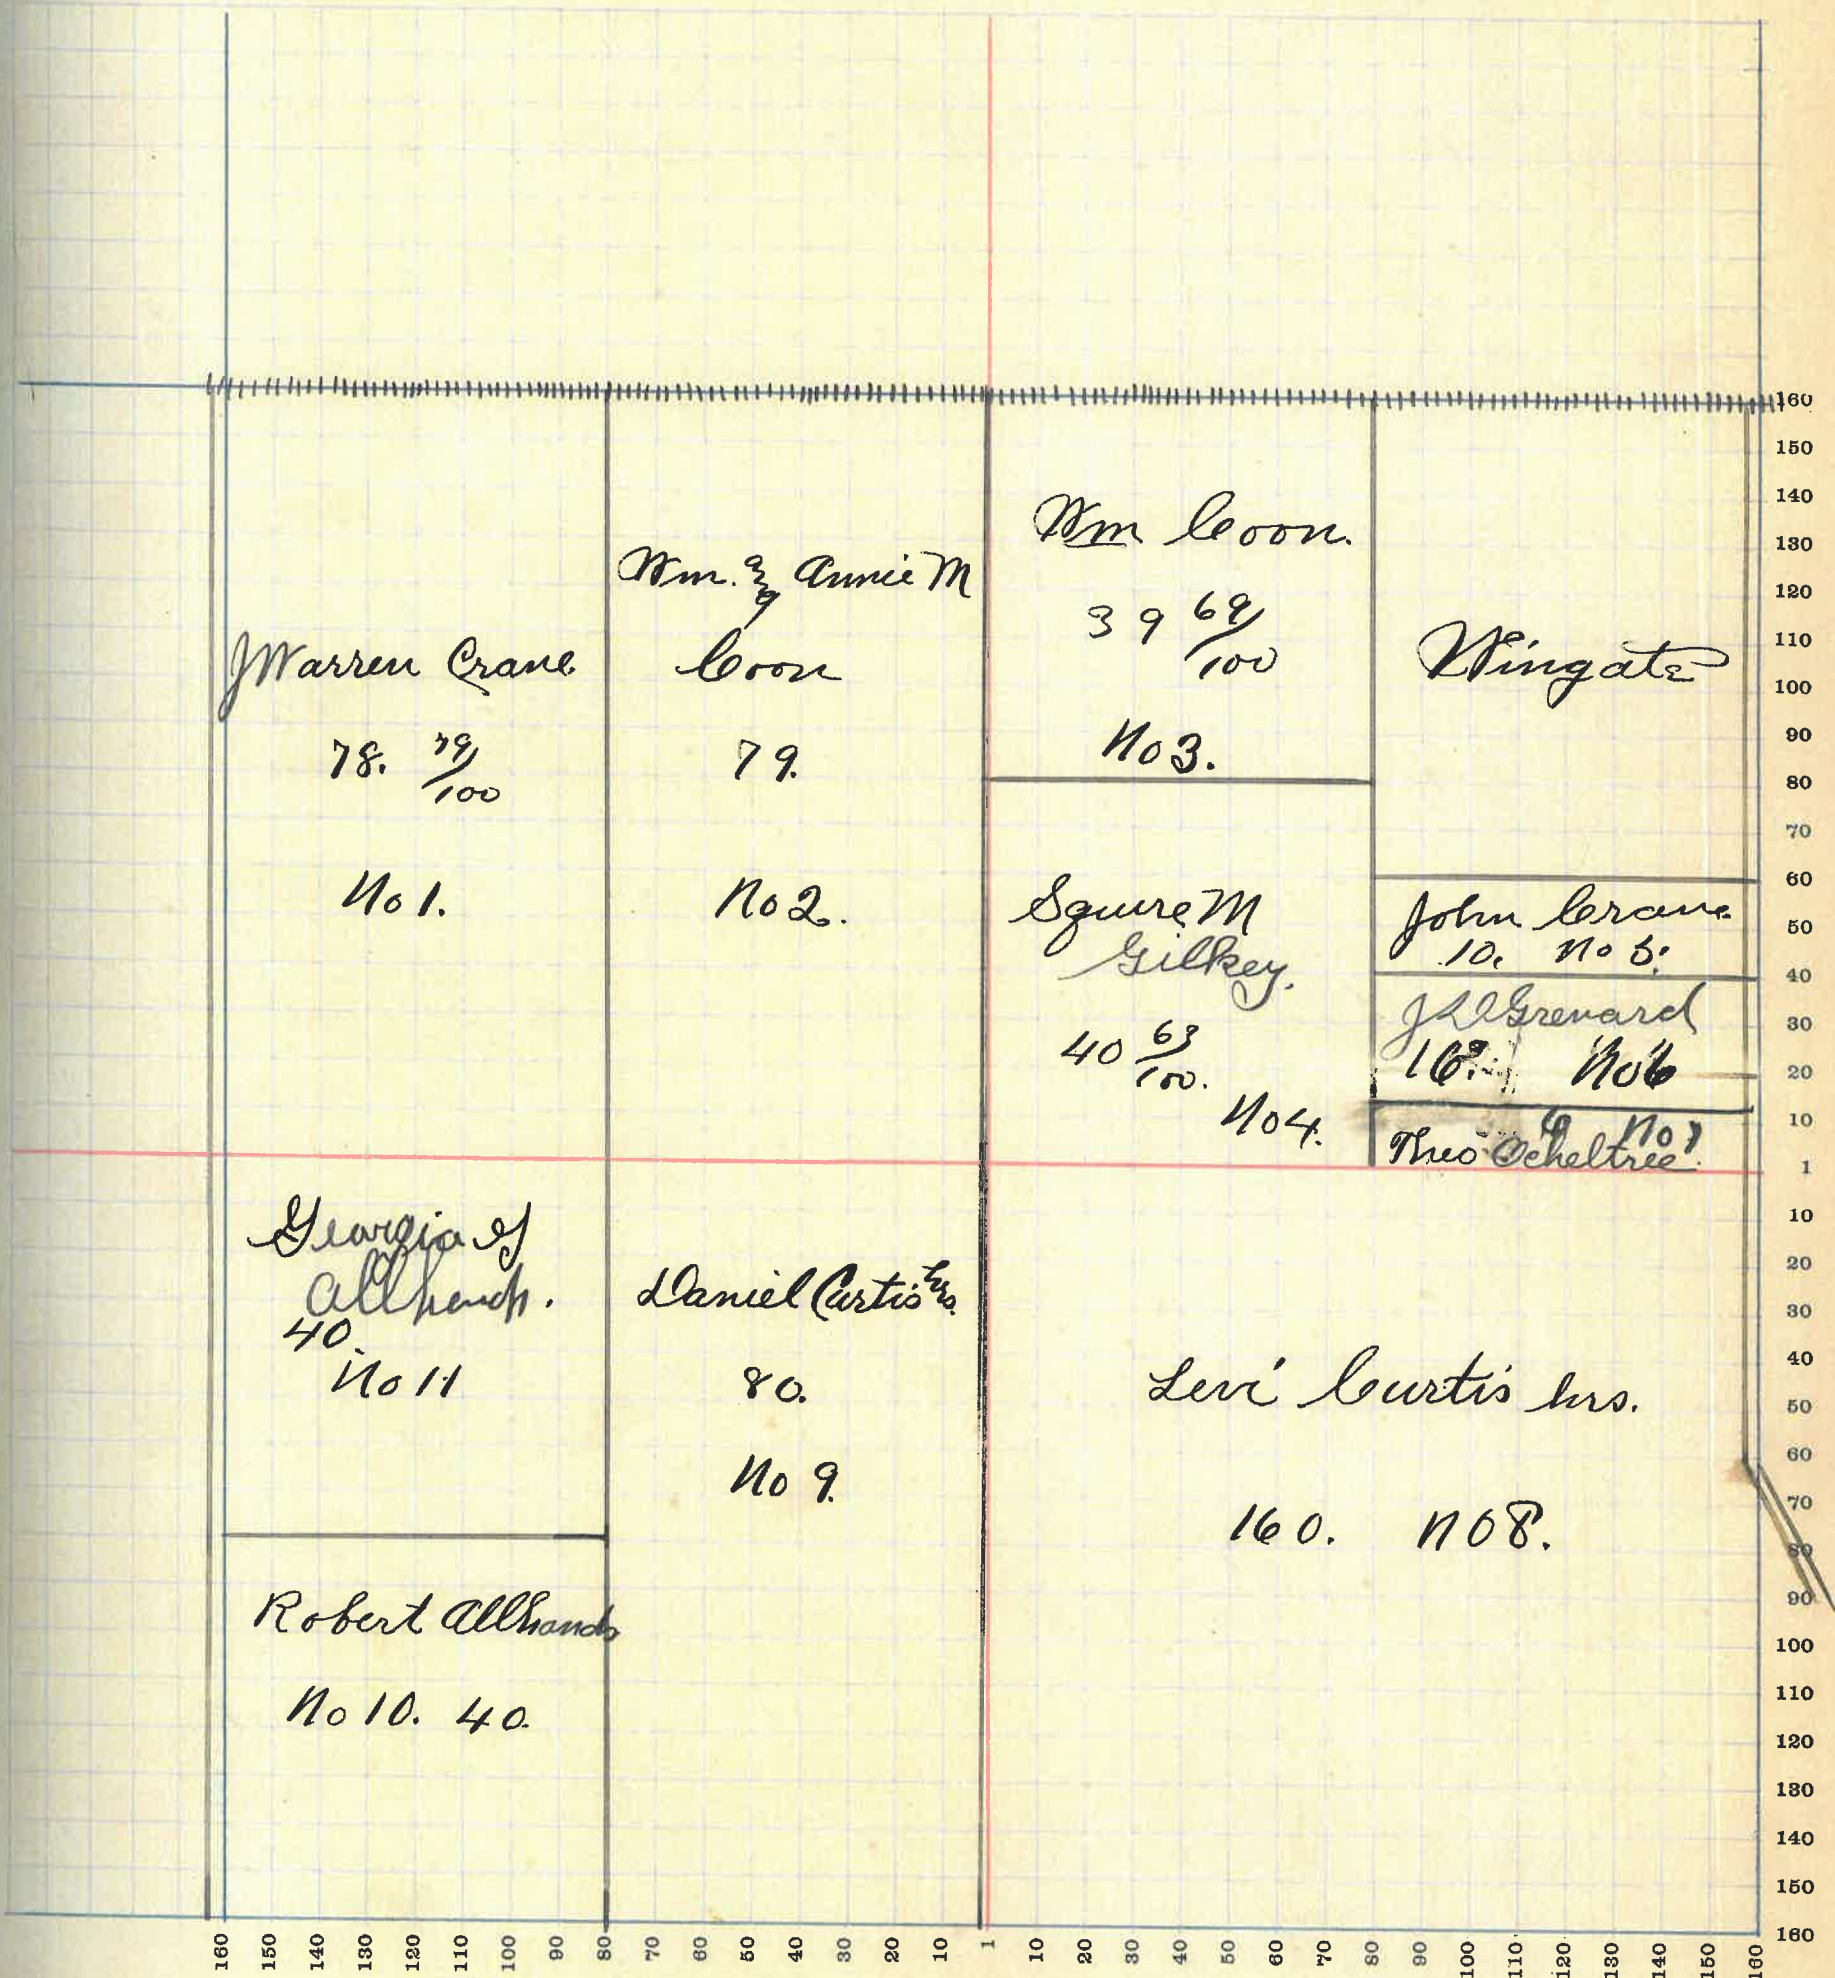 J Warren Crane
78. 79/100
No 1.
Wm. & Annie M
Coon
79.
No 2.
Wm Coon.
39 69/100
No 3.
Wingate
Squire M
Gilkey.
40 63/100.
No 4.
John Crane
10. No 5.
Grenard
16. No 6
6 No 7
Theo Ocheltree.
Georgia
40.
No 11
Daniel Curtis hrs.
80.
No 9.
Levi Curtis hrs.
160. No 8.
Robert Allhands
No 10. 40.
160
150
140
130
120
110
100
90
80
70
60
50
40
30
20
10
1
10
20
30
40
50
60
70
80
90
100
110
120
130
140
150
160
160 150 140 130 120 110 100 90 80 70 60 50 40 30 20 10 1 10 20 30 40 50 60 70 80 90 100 110 120 130 140 150 160